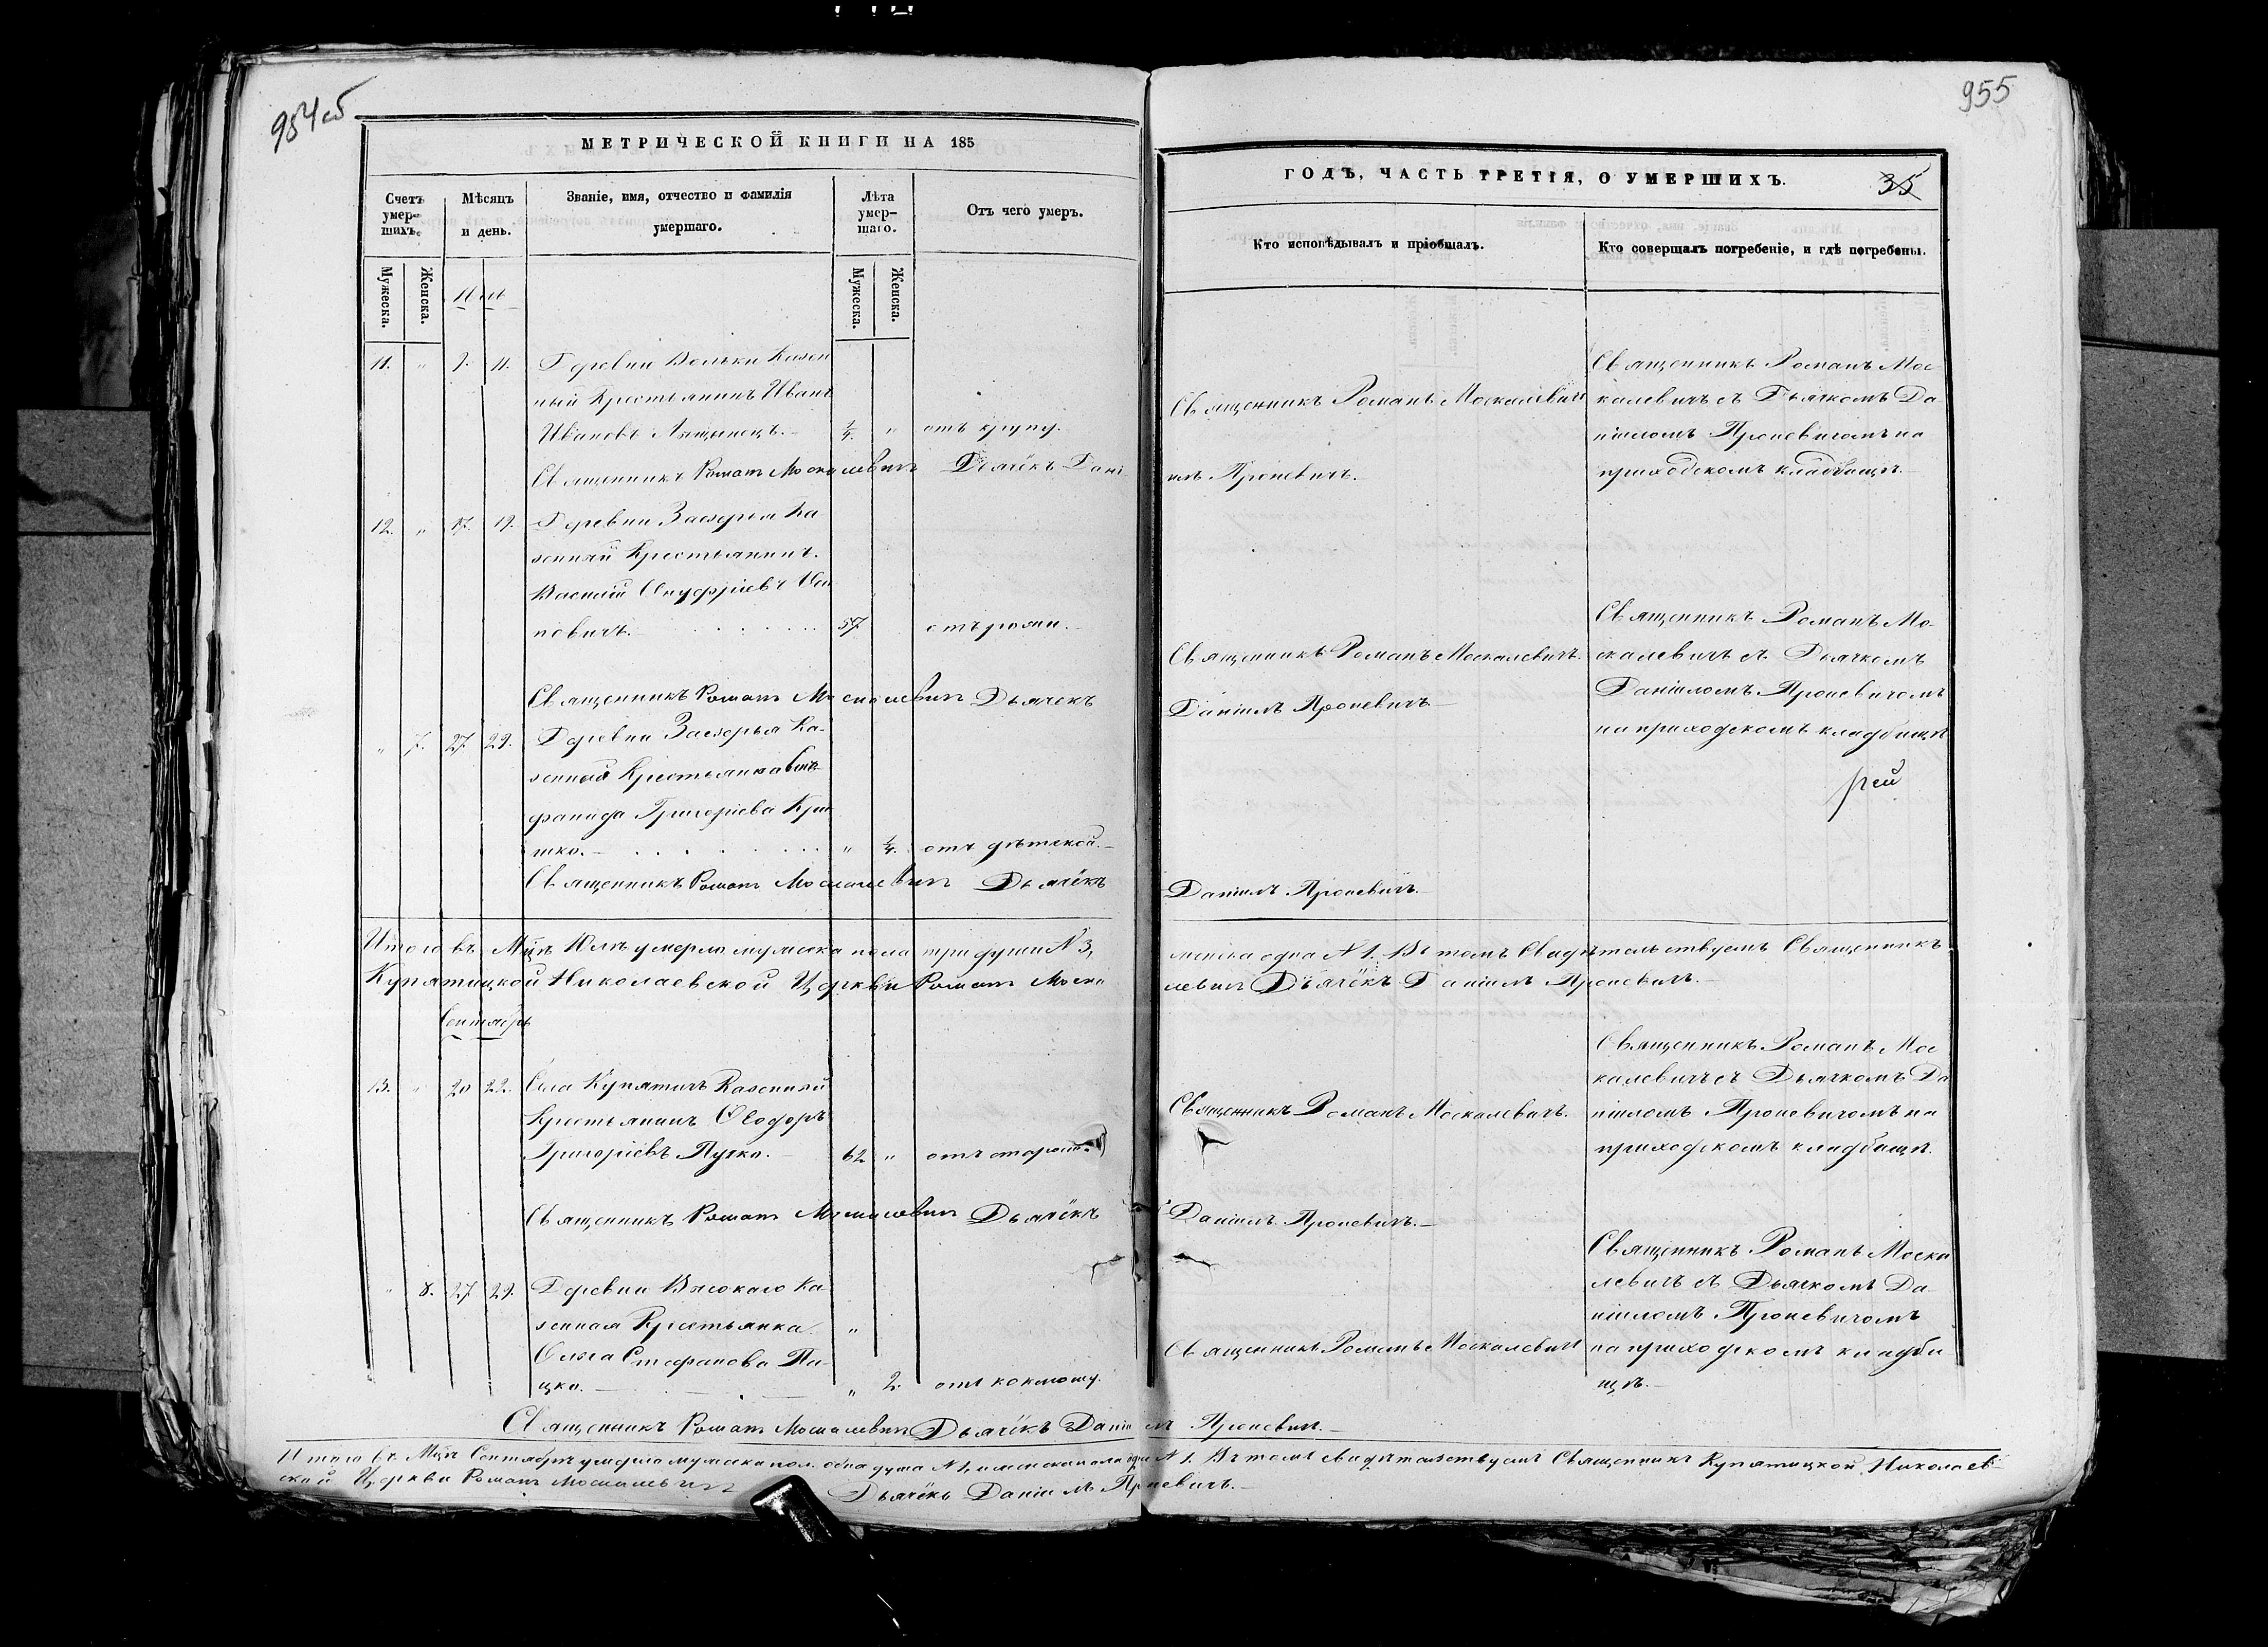 954 об
МЕТРИЧЕСКОЙ КНИГИ НА 185
Счетъ умер-шихъ.
Мѣсяцъ и день.
Званіе, имя, отчество и фамилія умершаго.
Лѣта умер-шаго.
Отъ чего умеръ.
Мужеска.
Женска.
Мужеска.
Женска.
11. " 9. 11. Деревни Вольки Казен
ный Крестьянинъ Иванъ
Ивановъ Лящинецъ. 1/4. " отъ крупу.
Священникъ Романъ Москалевичъ Дьячёкъ Дані
12. " 17. 19. Деревни Заезерья Ка
зенный Крестьянинъ
Василій Онуфріевъ
новичъ. 57 отъ рожи.
Священникъ Романъ Москалевичъ Дьячекъ
" 7. 27 29. Деревни Заезерья Ка-
зенная Крестьянка
Григоріева
шко. " 1/4. отъ дѣтской.
Священникъ Романъ Москалевичъ Дьячёкъ
Итого въ Мцѣ Юлѣ умерло мужеска пола три души N 3,
Купятицкой Николаевской Церкви Романъ Моска
Сентябрь
13. " 20 22. Села Купятичъ Казенный
Крестьянинъ Ѳеодоръ
Григоріевъ Пучко. 62 " отъ старости
Священникъ Романъ Москалевичъ Дьячёкъ
" 8. 27 29. Деревни Высокаго Ка
зенная Крестьянка "
Ольга Стефанова Па-
цко. " 2. отъ коклюшу.
Священникъ Романъ Москалевичъ Дьячёкъ Даніилъ Проневичъ.
Итого въ Мцѣ Сентябрѣ умерло мужеска пол. одна душа N 1, и женска пола одна N 1. Въ томъ свидѣтельствуемъ Священникъ Купятицкой Николаев-
ской Церкви Романъ Москалевичъ Дьячёкъ Даніилъ Проневичъ.
955
ГОДЪ, ЧАСТЬ ТРЕТІЯ, О УМЕРШИХЪ.
35
Кто исповѣдывалъ и пріобщалъ.
Кто совершалъ погребеніе, и гдѣ погребены.
Священникъ Романъ Москалевичъ
илъ Проневичъ.
Священникъ Романъ Мос
калевичъ съ Дьячкомъ Да
ніиломъ Проневичомъ на
приходскомъ кладбищѣ.
Священникъ Романъ Москалевичъ.
Даніилъ Проневичъ.
Священникъ Романъ Мо-
скалевичъ съ Дьячкомъ
Даніиломъ Проневичомъ
на приходскомъ кладбищѣ
Даніилъ Проневичъ.
женска одна N 1. Въ томъ Свидѣтельствуемъ Священникъ
левичъ Дьячёкъ Даніилъ Проневичъ.
Священникъ Романъ Москалевичъ.
Священникъ Романъ Мос
калевичъ съ Дьячкомъ Да
ніиломъ Проневичомъ на
приходскомъ кладбищѣ.
Даніилъ Проневичъ.
Священникъ Романъ Москалевичъ
Священникъ Романъ Моска
левичъ съ Дьячкомъ Да-
ніиломъ Проневичомъ
на приходскомъ кладби-
щѣ.